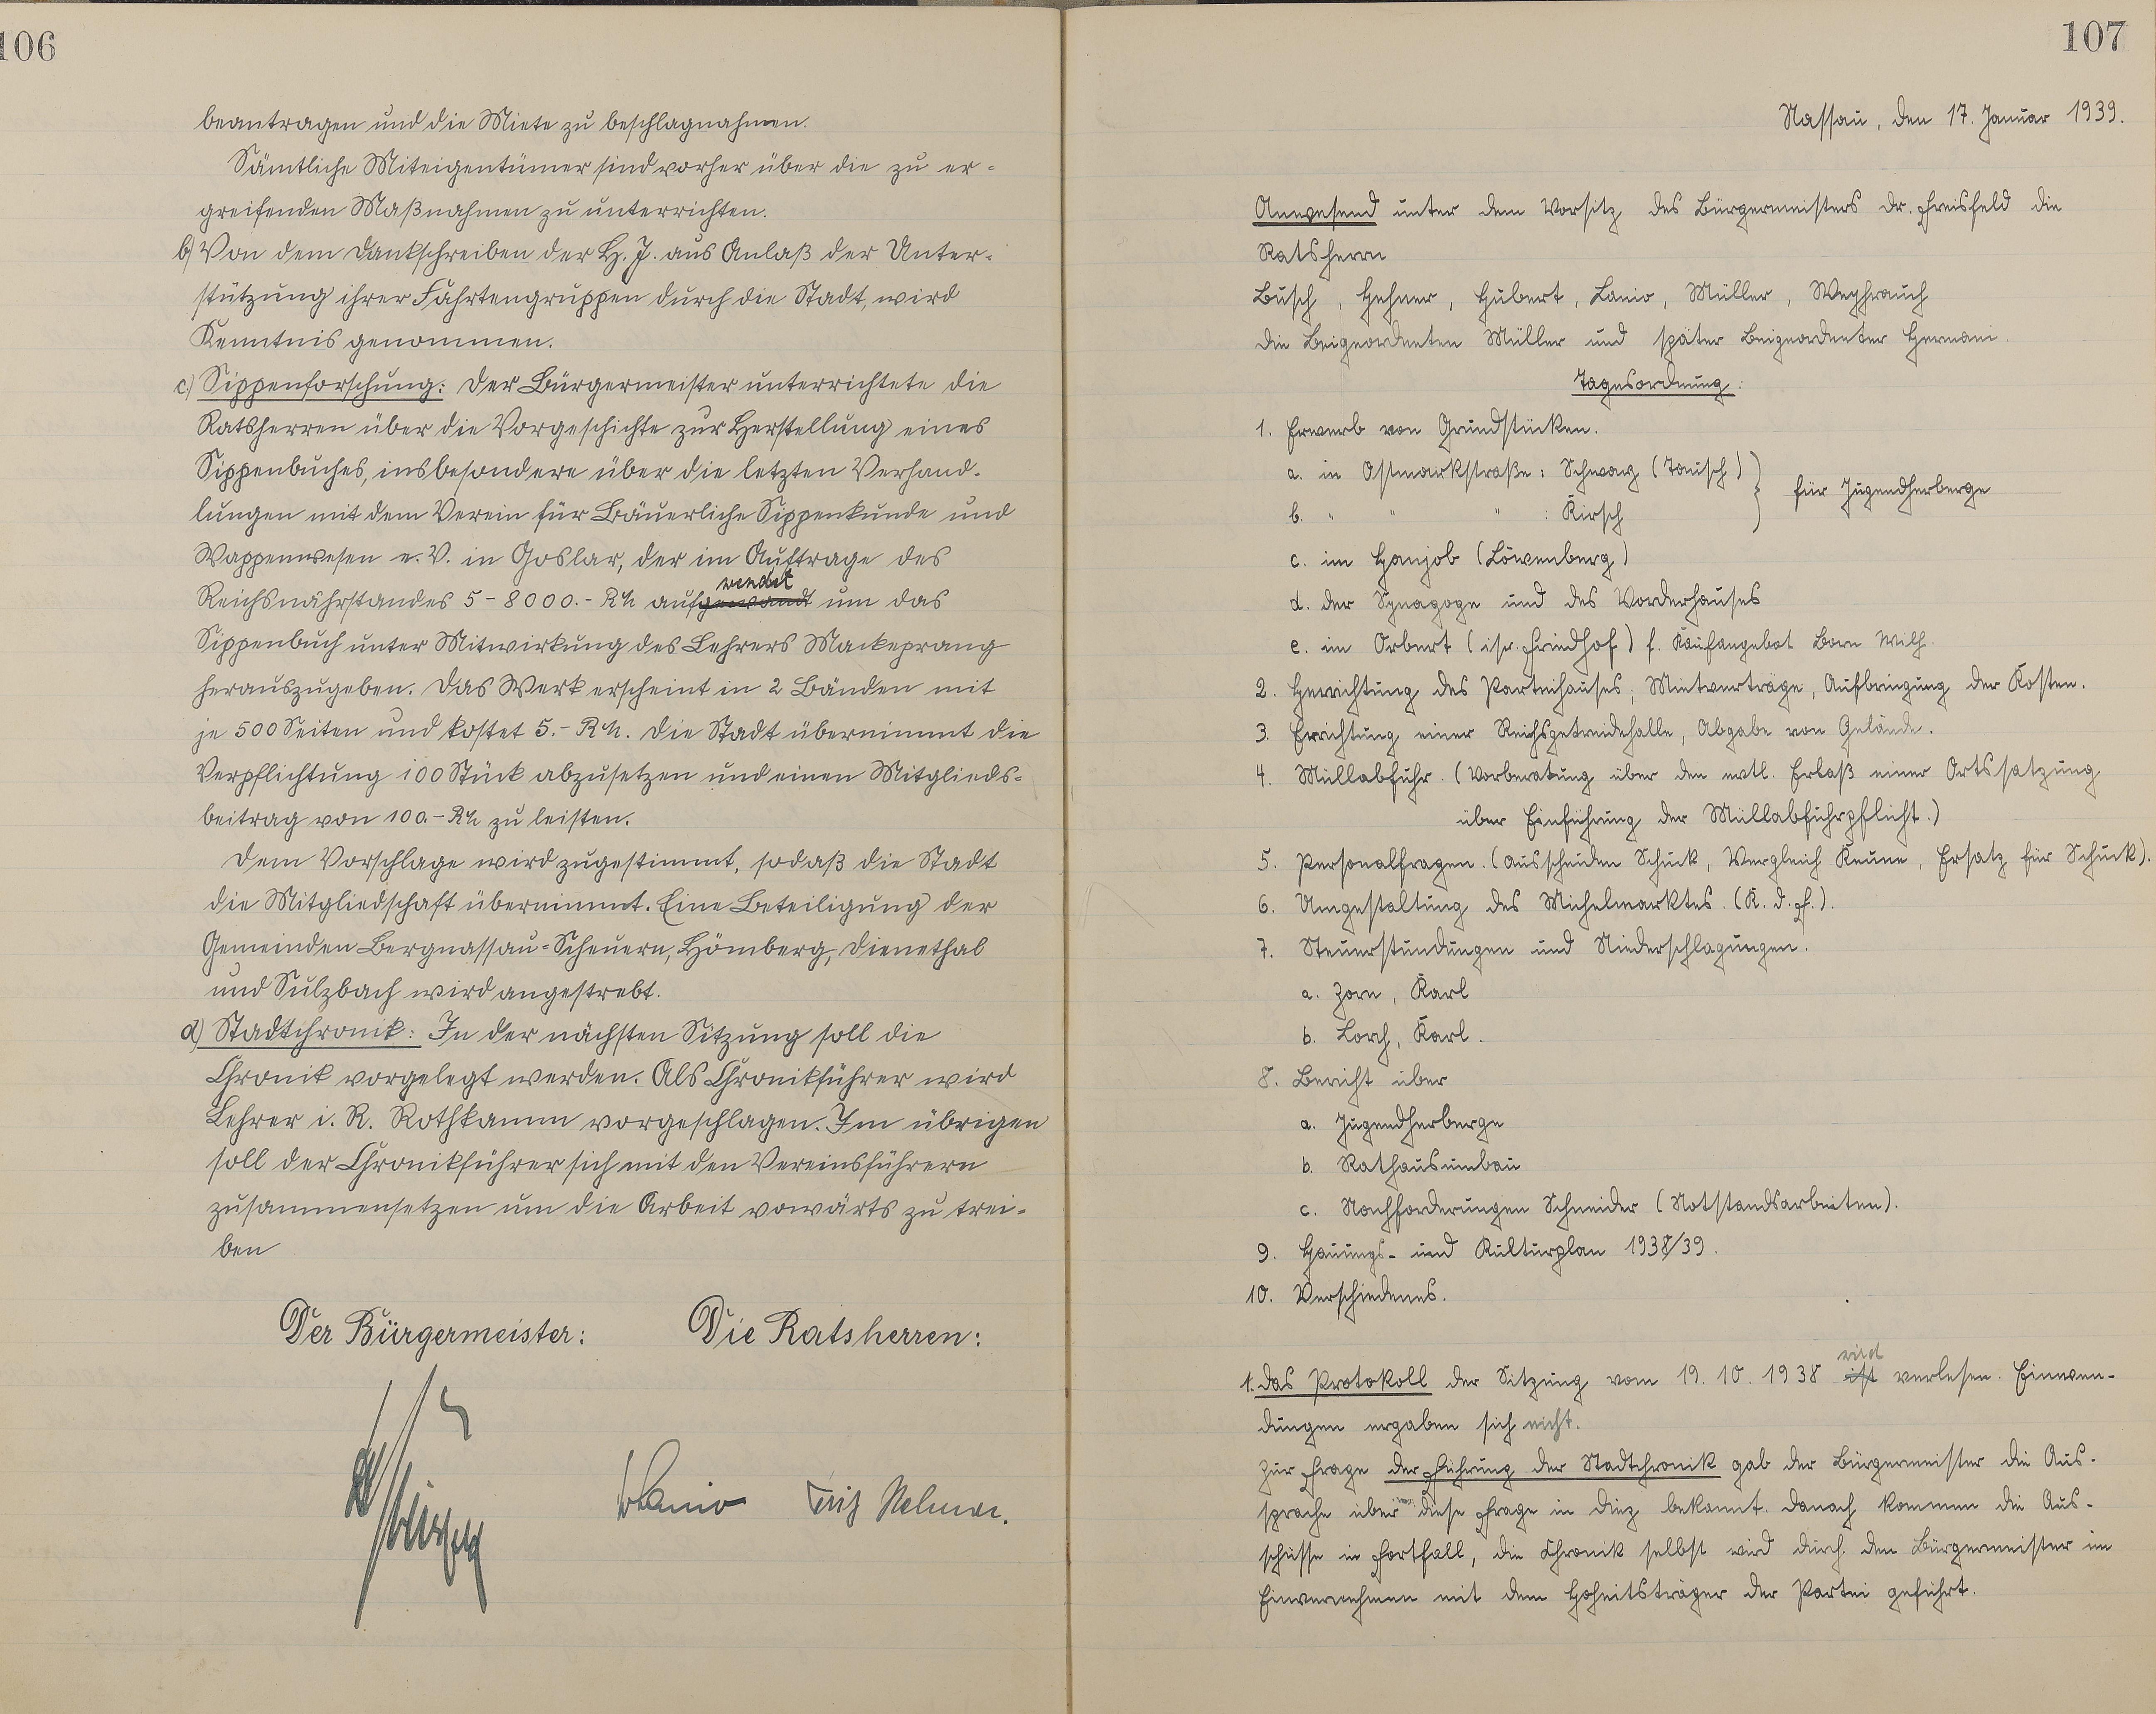 106
beantragen und die Miete zu beschlagnahmen.
Sämtliche Miteigentümer sind vorher über die zu er-
greifenden Maßnahmen zu unterrichten.
b) Von dem Dankschreiben der H. J. aus Anlaß der Unter-
stützung ihrer Fahrtengruppen durch die Stadt, wird
Kenntnis genommen.
c) Sippenforschung: Der Bürgermeister unterrichtete die
Ratsherren über die Vorgeschichte zur Herstellung eines
Sippenbuches, insbesondere über die letzten Verhand-
lungen mit dem Verein für Bäuerliche Sippenkunde und
Wappenwesen e. V. in Goslar, der im Auftrage des
wendet
Reichsnährstandes 5-8000.- RM aufgewandt um das
Sippenbuch unter Mitwirkung des Lehrers Mackeprang
herauszugeben. Das Werk erscheint in 2 Bänden mit
je 500 Seiten und kostet 5.- RM. Die Stadt übernimmt die
Verpflichtung 100 Stück abzusetzen und einen Mitglieds-
beitrag von 100.- RM zu leisten.
Dem Vorschlage wird zugestimmt, sodaß die Stadt
die Mitgliedschaft übernimmt. Eine Beteiligung der
Gemeinden Bergnassau-Scheuern, Hömberg, Dienethal
und Sulzbach wird angestrebt.
d) Stadtchronik: In der nächsten Sitzung soll die
Chronik vorgelegt werden. Als Chronikführer wird
Lehrer i. R. Rothkamm vorgeschlagen. Im übrigen
soll der Chronikführer sich mit den Vereinsführern
zusammensetzen um die Arbeit vowärts zu trei-
ben
Der Bürgermeister: Die Ratsherren:
Lanio Fritz Hehner.
107
Nassau, den 17. Januar 1939.
Anwesend unter dem Vorsitz des Bürgermeisters Dr. Freisfeld die
Ratsherrn
Busch, Hehner, Hubert, Lanio, Müller, Weyhrauch
die Beigeordneten Müller und später Beigeordneter Hermani.
Tagesordnung:
1. Erwerb von Grundstücken.
a. in Ostmarkstraße: Schwarz (Tonisch) } für Jugendherberge
b. " " " : Kirsch
c. im Hanjob (Löwenberg)
d. der Synagoge und des Vorderhauses
e. im Orbert (isr. Friedhof) f. Kaufangebot Born Wilh.
2. Herrichtung des Parteihauses; Mietverträge, Aufbringung der Kosten.
3. Errichtung einer Reichsgetreidehalle, Abgabe von Gelände.
4. Müllabfuhr. (Vorberatung über den evtl. Erlaß einer Ortssatzung
über Einführung der Müllabfuhrpflicht.)
5. Personalfragen. (Ausscheiden Schuck, Vergleich Keune, Ersatz für Schuck).
6. Umgestaltung des Michelmarktes. (K. d. F.).
7. Steuerstundungen und Niederschlagungen.
a. Zorn, Karl
b. Lorch, Karl.
8. Bericht über
a. Jugendherberge
b. Rathausumbau
c. Nachforderungen Schneider (Notstandsarbeiten).
9. Hauungs- und Kulturplan 1938/39.
10. Verschiedenes.
wird
1. Das Protokoll der Sitzung vom 19. 10. 1938 ist verlesen. Einwen-
dungen ergaben sich nicht.
Zur Frage der Führung der Stadtchronik gab der Bürgermeister die Aus-
sprache über diese Frage in Diez bekannt. Danach kommen die Aus-
schüsse in Fortfall, die Chronik selbst wird durch den Bürgermeister im
Einvernehmen mit dem Hoheitsträger der Partei geführt.